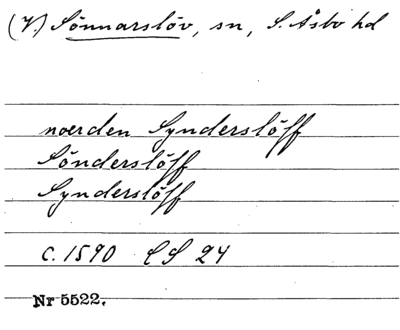 (V.) Sönnarslöv, sn, S. Åsbo hd
noerden Synderslöff
Sönderslöff
Synderslöff
c. 1590 LS 24
Nr 5522.